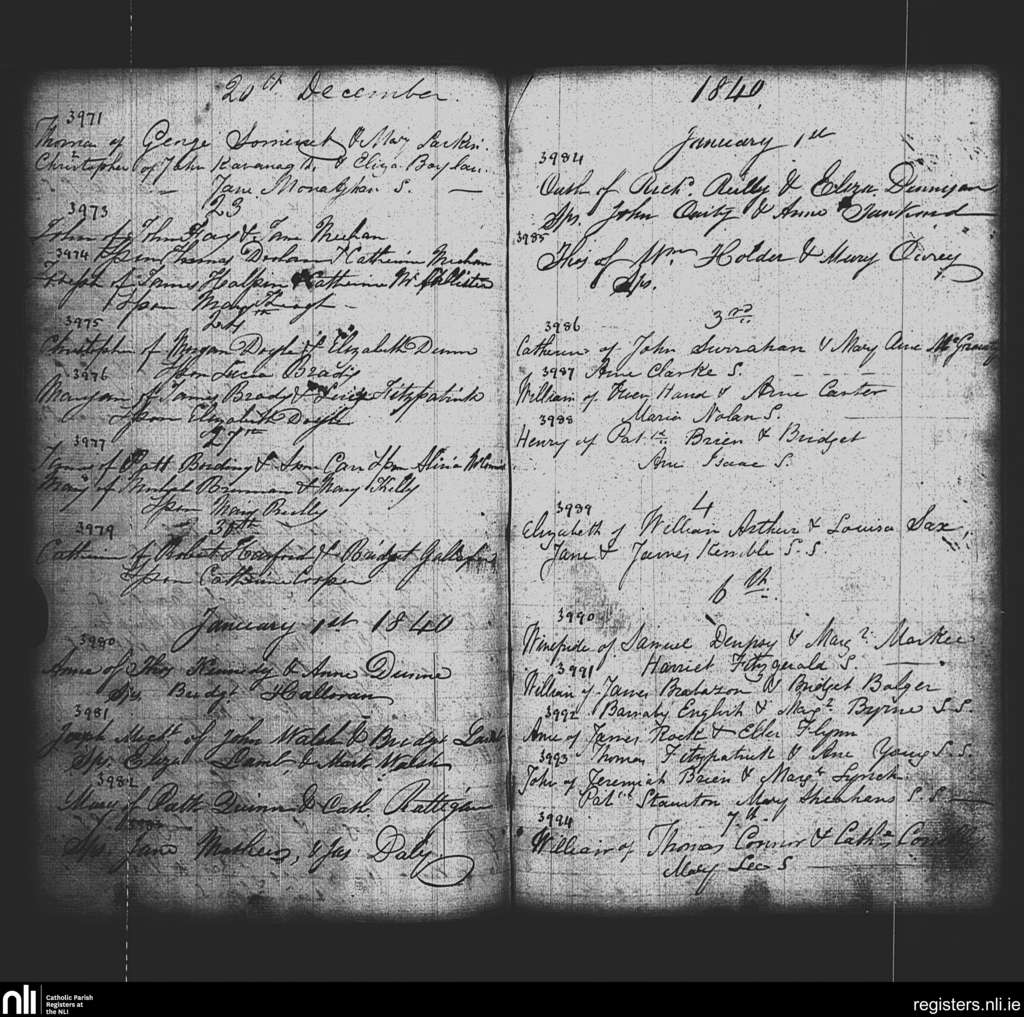 20th December.
3971
Thomas of George Somerset & Mary Larkin.
Christopher of John Kavanagh & Eliza Boylan.
Jane Monaghan S.
23
3973
John of John Fay & Jane Meehan
3974 Spon Thomas Doolan & Catherine Meehan
Joseph of James Halpin & Catherine McAllister
Spon Mary
24th
3975
Christopher of Morgan Doyle & Elizabeth Dunn
3976 Spon Lucia Brady
Maryann of James Brady & Fitzpatrick
Spon Elizabeth Doyle
27th
3977
of Patt & Carr Spon Alicia
Mary of Brennan & Mary Kelly
Spon Mary Reilly
3979
Catherine of Robert & Bridget Gallagher
Spon Catherine Cooper
January 1st 1840
3980
Anne of Thos Kennedy & Anne Dunne
Sps Bridgt Halloran
3981
Joseph Michl of John Walsh & Bridgt
Sps. Eliza Lamb & Mark Walsh
3982
Mary of Patk Dunne & Cath. Rattigan
Sps. Jane Mathews, & Jas Daly
1840
January 1st
3984
Cath of Richd. Reilly & Eliza Dunnyan
Sps. John & Anne
3985
Thos of Wm Holder & Mary
Sps.
3rd
3986
Catherine of John & Mary Anne
3987 Anne Clarke S.
William of Hand & Anne Carter
3988 Maria Nolan S.
Henry of Patk Brien & Bridget
Ann Isaac S.
4
3989
Elizabeth of William Arthur & Louisa Sax
Jane & James Kemble S. S.
6th
3990
Winefride of Samuel Dempsy & Margt Markee
3991 Harriet Fitzgerald S.
William of James Brabazon & Bridget Bolger
3992 Barnaby English & Margt Byrne S S.
Anne of James Rock & Ellen Flynn
3993 Thomas Fitzpatrick & Ann Young S. S.
John of Jeremiah Brien & Margt Lynch
Patk Staunton Mary Sheehans S. S.
3994 7th
William of Thomas Connor & Cathe
Mary Lee S
nli
Catholic Parish
Registers at
the NLI
registers.nli.ie